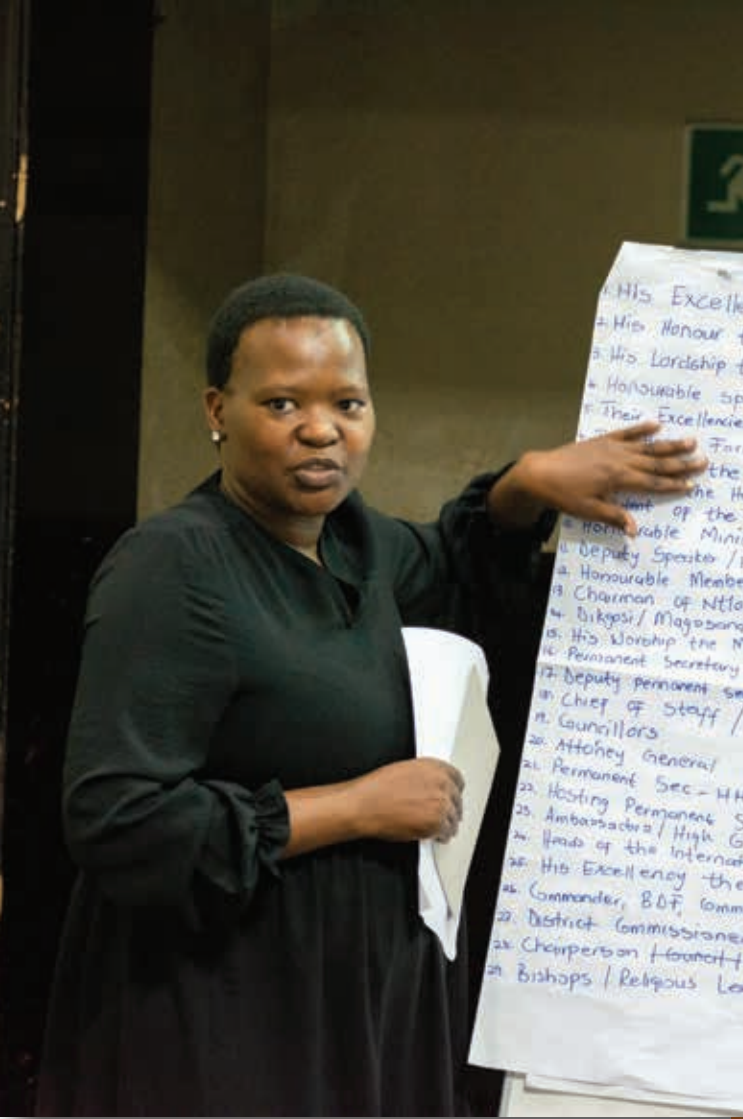 1. His Excelle
2. His Honour
3. His Lordship
4. Honourable sp
5. Their Excellencie
For
the
the H
dent of the
Honourable Mini
11. Deputy Speaker /
12. Honourable Membe
13. Chairman of Ntlo
14. Dikgosi / Magosana
15. His Worship the M
16. Permanent Secretary
17. Deputy permanent se
18. Chief of Staff /
19. Councillors
20. Attorney General
21. Permanent Sec - HH
22. Hosting Permanent S
23. Ambassadors / High C
24. Heads of the Internat
25. His Excellency the
26. Commander, BDF, Comm
27. District Commissione
28. Chairperson
29. Bishops / Religious Lea